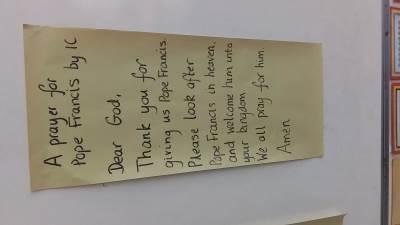 A prayer for
Pope Francis by IC
Dear God,
Thank you for
giving us Pope Francis
Please look after
Pope Francis in heaven,
and welcome him into
your kingdom
We all pray for him.
Amen